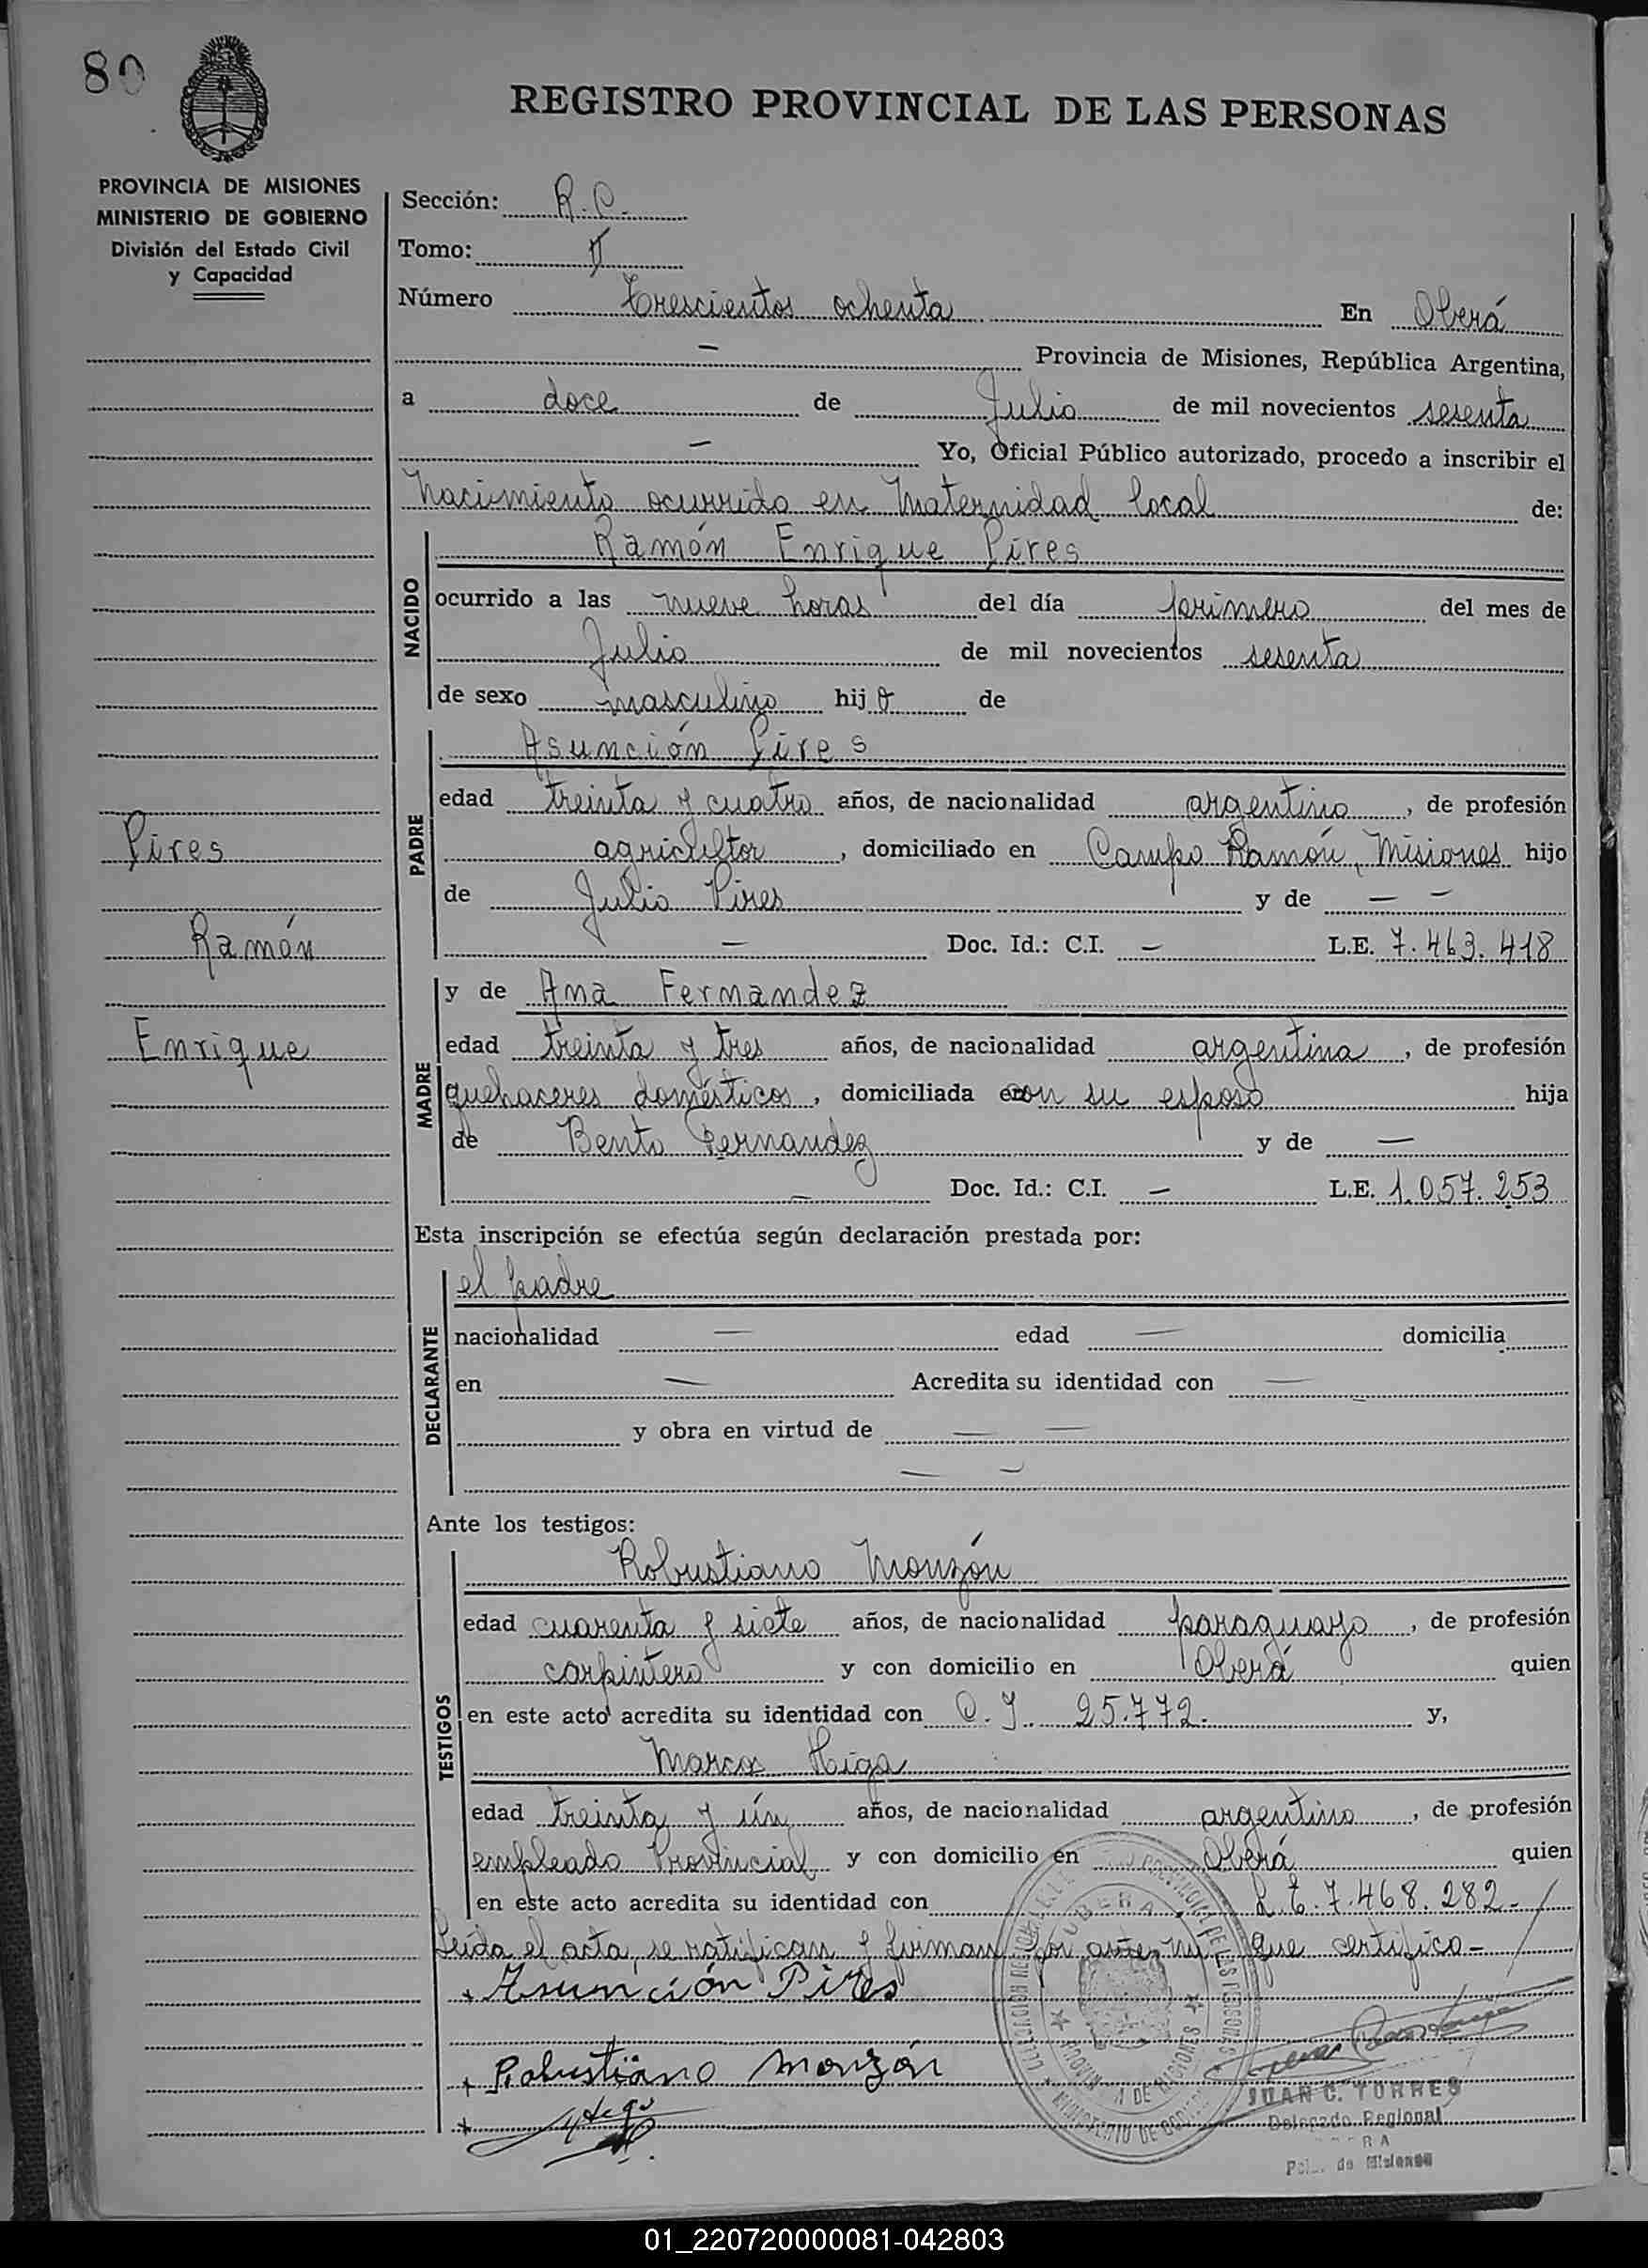 80
REGISTRO PROVINCIAL DE LAS PERSONAS
PROVINCIA DE MISIONES
MINISTERIO DE GOBIERNO
División del Estado Civil
y Capacidad
Sección: R. C.
Tomo: II
Número Trescientos ochenta En Oberá
— Provincia de Misiones, República Argentina,
a doce de Julio de mil novecientos sesenta
— Yo, Oficial Público autorizado, procedo a inscribir el
Nacimiento ocurrido en Maternidad local de:
NACIDO
Ramón Enrique Pires
ocurrido a las nueve horas del día primero del mes de
Julio de mil novecientos sesenta
de sexo masculino hijo de
PADRE
Asunción Pires
edad treinta y cuatro años, de nacionalidad argentino, de profesión
agricultor, domiciliado en Campo Ramón, Misiones hijo
de Julio Pires y de — —
— Doc. Id.: C.I. — L.E. 7.463.418
Pires
Ramón
Enrique
MADRE
y de Ana Fernandez
edad treinta y tres años, de nacionalidad argentina, de profesión
quehaceres domésticos, domiciliada con su esposo hija
de Bento Fernandez y de —
— Doc. Id.: C.I. — L.E. 1.057.253
Esta inscripción se efectúa según declaración prestada por:
DECLARANTE
el padre
nacionalidad — edad — domicilia
en — Acredita su identidad con —
y obra en virtud de — —
— —
Ante los testigos:
TESTIGOS
Robustiano Monzón
edad cuarenta y siete años, de nacionalidad paraguayo, de profesión
carpintero y con domicilio en Oberá quien
en este acto acredita su identidad con C. I. 25.772. y,
Marcos Higa
edad treinta y ún años, de nacionalidad argentino, de profesión
empleado Provincial y con domicilio en Oberá quien
en este acto acredita su identidad con L.E. 7.468.282.-
Leida el acta, se ratifican y firman por ante mi que certifico-
Asunción Pires
Robustiano Monzón
OBERA
JUAN C. TORRES
Delegado Regional
Pcia. de Misiones
01_220720000081-042803